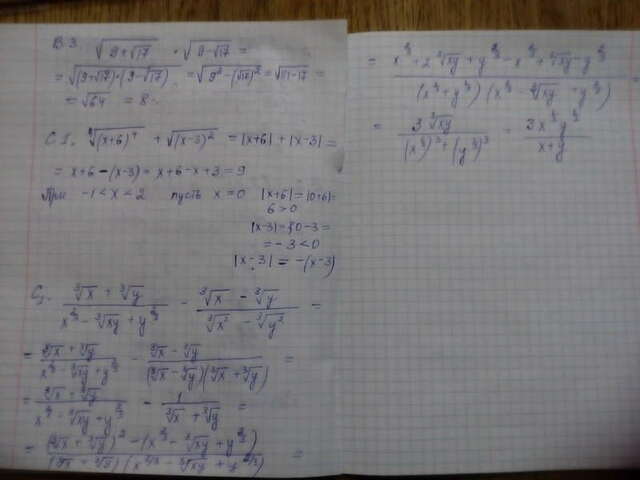 В.3. √(9+√17) · √(9-√17) =
= √((9+√17)·(9-√17)) = √(9²-(√17)²) = √(81-17) =
= √64 = 8
C1. ⁴√(x+6)⁴ + √(x-3)² = |x+6| + |x-3| =
= x+6-(x-3) = x+6-x+3 = 9
При -1<x<2 пусть x=0 |x+6|=|0+6|=
6>0
|x-3|=|0-3=
=-3<0
|x-3| = -(x-3)
C2. (∛x + ∛y)/(x^⅔ - ∛xy + y^⅔) - (∛x - ∛y)/(∛x² - ∛y²) =
= (∛x + ∛y)/(x^⅔ - ∛xy + y^⅔) - (∛x - ∛y)/((∛x - ∛y)(∛x + ∛y)) =
= (∛x + ∛y)/(x^⅔ - ∛xy + y^⅔) - 1/(∛x + ∛y) =
= ((∛x + ∛y)² - (x^⅔ - ∛xy + y^⅔))/((∛x + ∛y)(x^2/3 - ∛xy + y^2/3)) =
= (x^⅔ + 2∛xy + y^⅔ - x^⅔ + ∛xy - y^⅔)/((x^⅓ + y^⅓)(x^⅔ - ∛xy + y^⅔))
= 3∛xy/((x^⅓)³ + (y^⅓)³) = 3x^⅓y^⅓/(x+y)